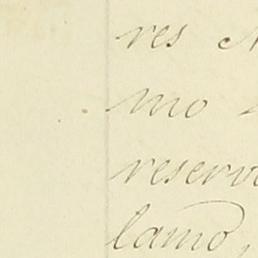 res
mo
reserv
lamo,